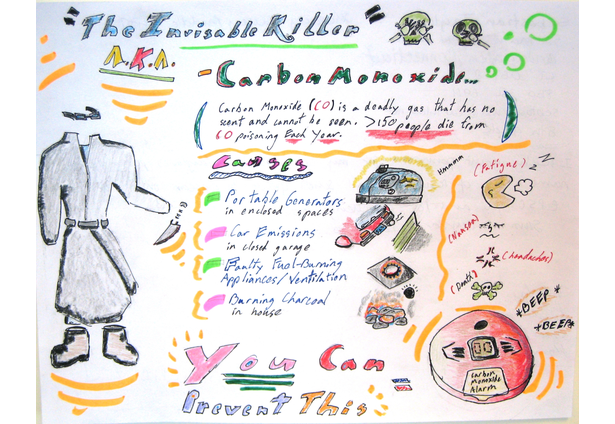 "The Invisable Killer"
A.K.A.
- Carbon Monoxide...
Carbon Monoxide (CO) is a deadly gas that has no
scent and cannot be seen. >150 people die from
CO poisoning Each Year.
Causes
Portable Generators
in enclosed spaces
Car Emissions
in closed garage
Faulty Fuel-Burning
Appliances/Ventilation
Burning Charcoal
in house
Hmmmm
(Fatigue)
z z
(headaches)
(Death)
*BEEP*
*BEEP*
00
Carbon
Monoxide
Alarm
You Can
Prevent This